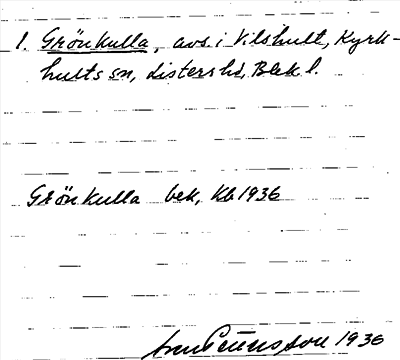 1. Grönkulla, avs. i Vilshult, Kyrk-
hults sn, Listers hd, Blek l.
Grönkulla bek, Kb 1936
1936